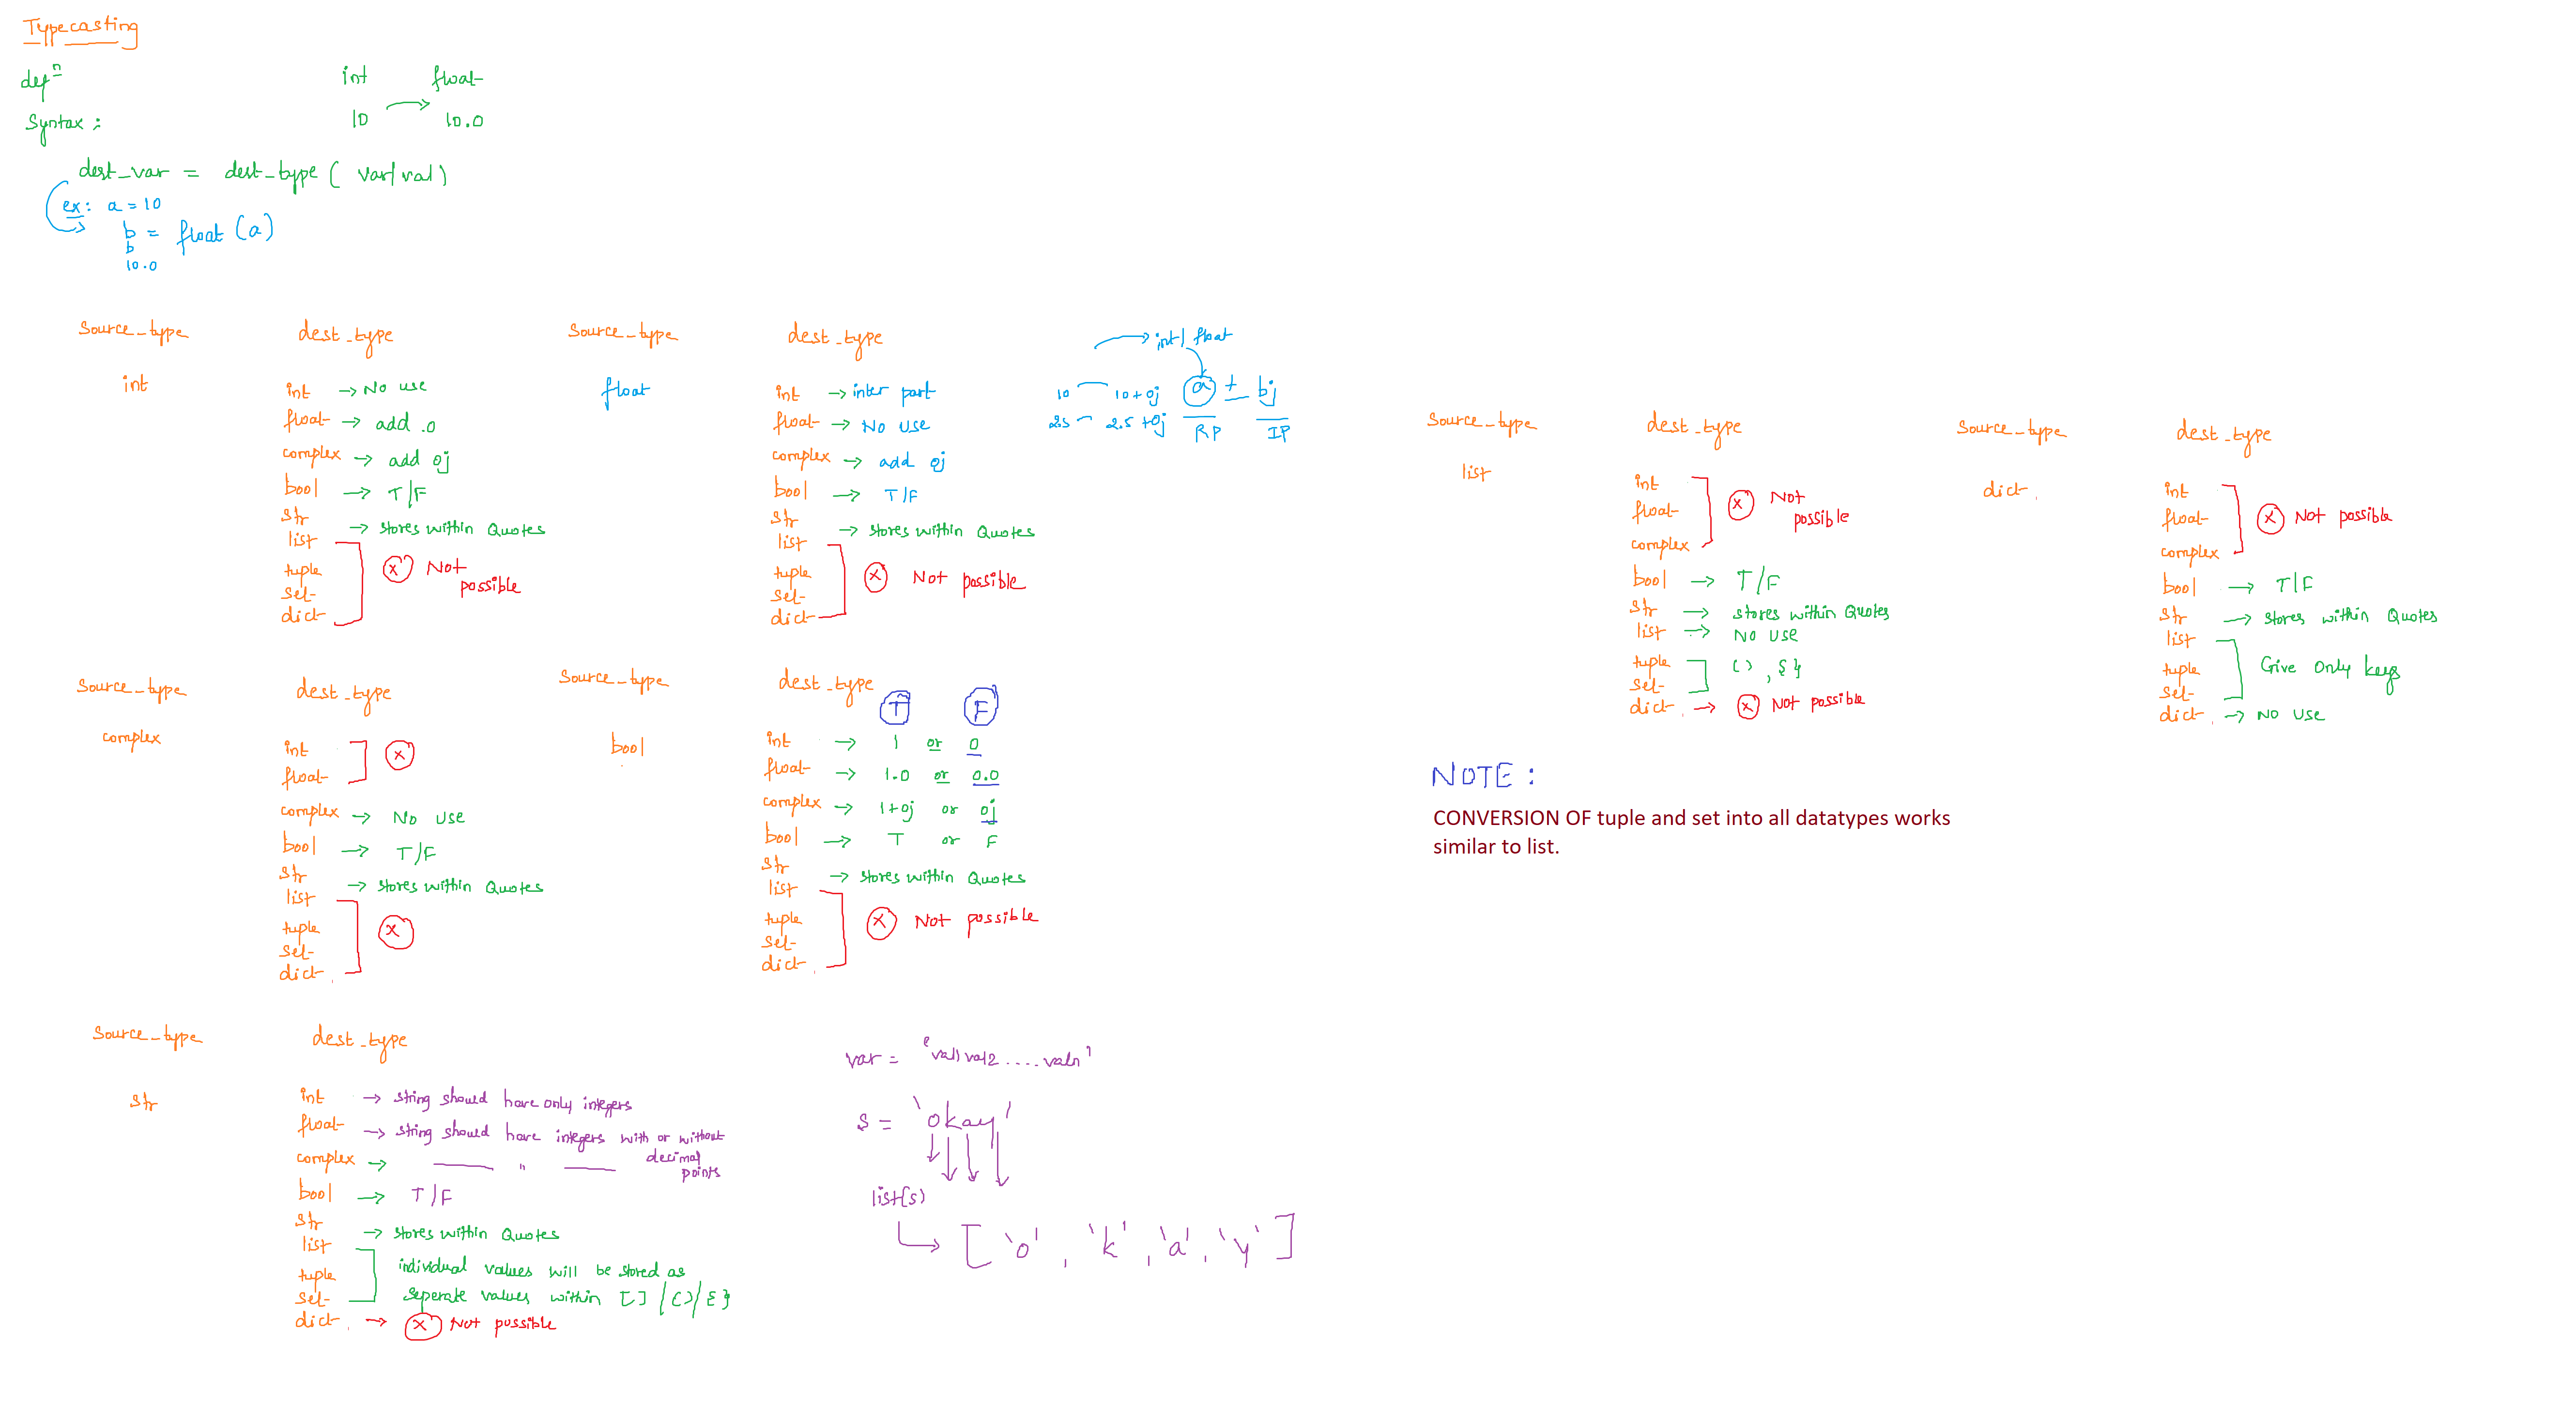 Typecasting
defn
int float
Syntax :
10 10.0
dest_var = dest_type ( var/val)
ex: a = 10
b = float (a)
b
10.0
Source_type dest_type
int
int → No use
float → add .0
complex → add 0j
bool → T/F
str → stores within Quotes
list
tuple
set
dict
X Not possible
Source_type dest_type
float
int → inter part
float → No use
complex → add 0j
bool → T/F
str → stores within Quotes
list
tuple
set
dict
X Not possible
int/ float
10 10+0j a ± bj
2.5 2.5+0j RP IP
Source_type dest_type
complex
int
float
X
complex → No use
bool → T/F
str → stores within Quotes
list
tuple
set
dict
X
Source_type dest_type
bool
T F
int → 1 or 0
float → 1.0 or 0.0
complex → 1+0j or 0j
bool → T or F
str → stores within Quotes
list
tuple
set
dict
X Not possible
Source_type dest_type
str
int → string should have only integers
float → string should have integers with or without decimal points
complex → —— " ——
bool → T/F
str → stores within Quotes
list
tuple
set
individual values will be stored as
seperate values within [] / () / {}
dict → X Not possible
var = 'val1 val2 .... valn'
s = 'okay'
list(s)
→ [ 'o' , 'k' , 'a' , 'y' ]
Source_type dest_type
list
int
float
complex
X Not possible
bool → T/F
str → stores within Quotes
list → No use
tuple
set
() , {}
dict → X Not possible
Source_type dest_type
dict
int
float
complex
X Not possible
bool → T/F
str → stores within Quotes
list
tuple
set
Give Only keys
dict → No use
NOTE :
CONVERSION OF tuple and set into all datatypes works
similar to list.